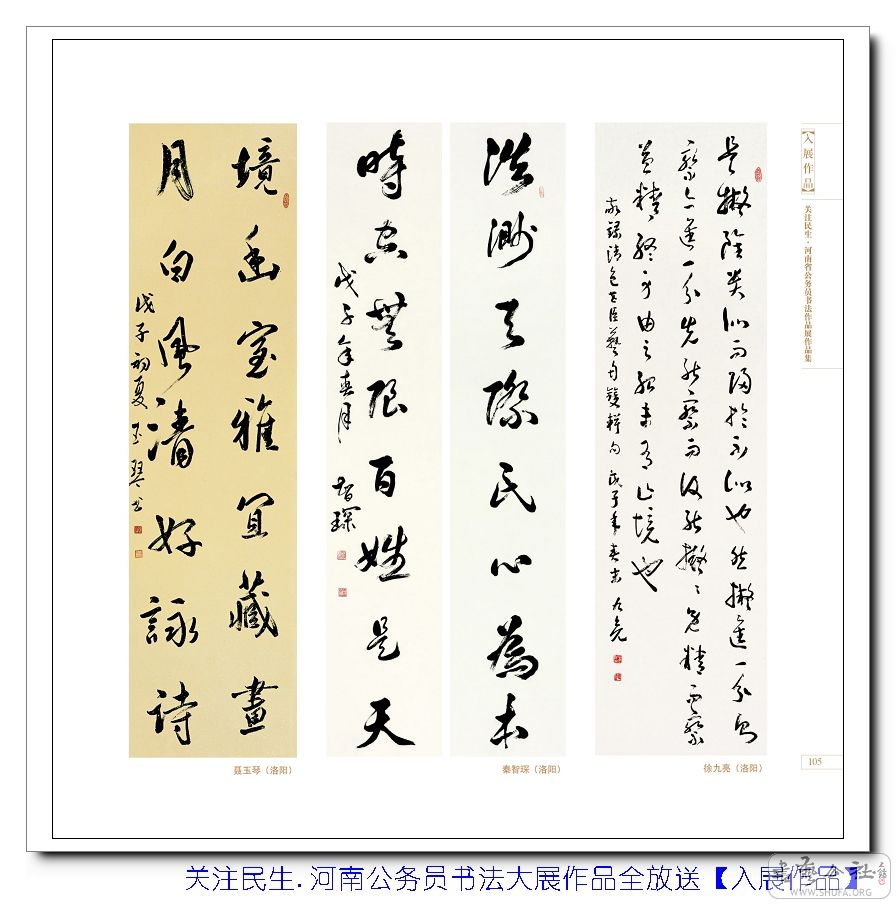 【入展作品】
关注民生·河南省公务员书法作品展作品集
105
是擬雖貴似而歸於不似也然擬進一分即
察亦進一分先能察而後能擬擬愈精而察
益精終身由之殆未有止境也
錄清包世臣藝舟雙楫句 戊子年春末九亮
徐九亮（洛阳）
渺天際民心為本
時空無限百姓是天
戊子年春月 智琛
秦智琛（洛阳）
境幽室雅宜藏畫
月白風清好詠詩
戊子初夏玉琴书
聂玉琴（洛阳）
关注民生.河南公务员书法大展作品全放送【入展作品】
WWW.SHUFA.ORG